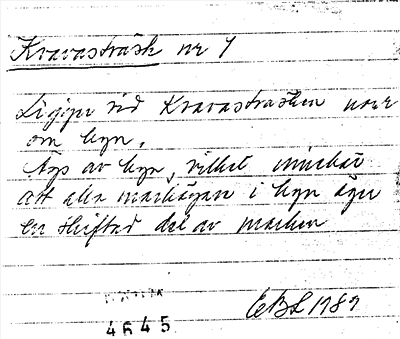 Kravasträsk nr 1
Ligger vid Kravasträsken norr
om byn.
Ägs av byn, vilket innebär
att alla markägare i byn äger
en skiftad del av marken
EBL 1989
4645